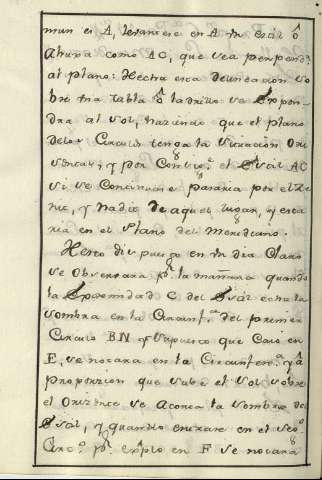 mun es A, levantese en A un estil ô
Ahuxa como AC, que sea perpend.r
al plano: Hecha esta delineacion so
bre una tabla ô ladrillo se Expon-
dra al Sol, haziendo que el plano
delos Circulos tenga la situacion Ori
sontal; y por Consig.te el Estil AC
si se Continuara pasaria por el Ze
nit, y Nadir de aquel lugar, y esta
ria en el Plano del Meridiano.
Hecho dispuesto en un dia Claro
se Observara p.r la mañana quando
la Extremidad C del Estil echa la
sombra en la Circunf.a del primer
Circulo BN y supuesto que Caio en
E, se notara en la Circunferen.a y â
proporcion que sube el Sol sobre
el Orizonte se Acorta la Sombra del
Estil, y quando entrare en el seg.o
Circ.o p.r exẽplo en F se notará